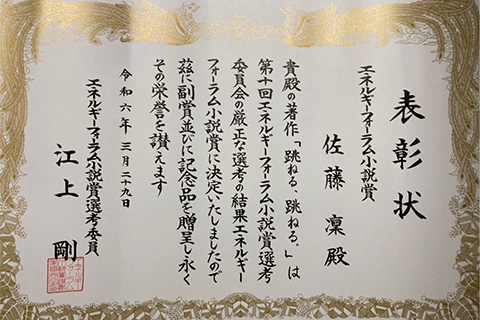 表彰状
エネルギーフォーラム小説賞
佐藤 凜殿
貴殿の著作「跳ねる、跳ねる。」は
第十回エネルギーフォーラム小説賞選考
委員会の厳正な選考の結果エネルギー
フォーラム小説賞に決定いたしましたので
茲に副賞並びに記念品を贈呈し永く
その栄誉を讃えます
令和六年 三月二十九日
エネルギーフォーラム小説賞選考委員
江上 剛